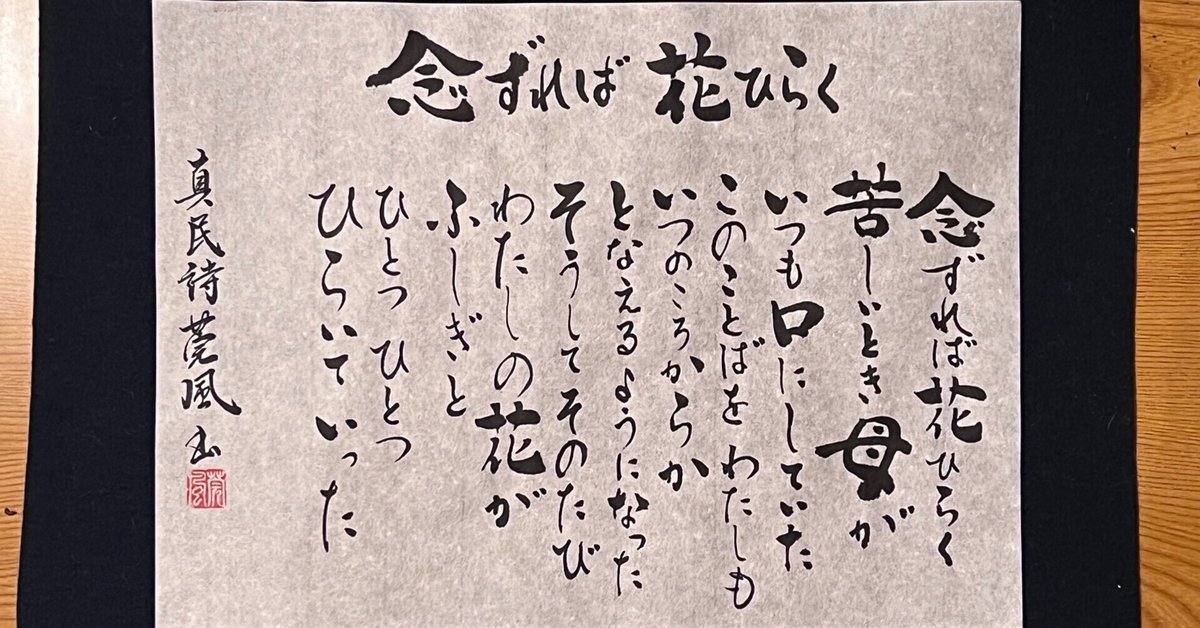 念ずれば花ひらく
念ずれば花ひらく
苦しいとき母が
いつも口にしていた
このことばをわたしも
いつのころからか
となえるようになった
そうしてそのたび
わたしの花が
ふしぎと
ひとつひとつ
ひらいていった
真民詩莞風書